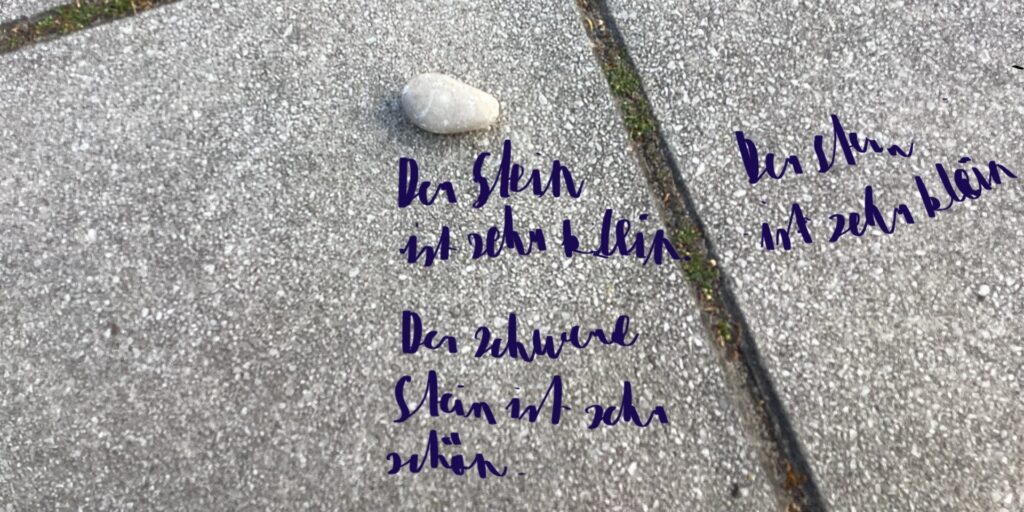 Der Stein
ist sehr klein.
Der schwere
Stein ist sehr
schön.
Der Stein
ist sehr klein